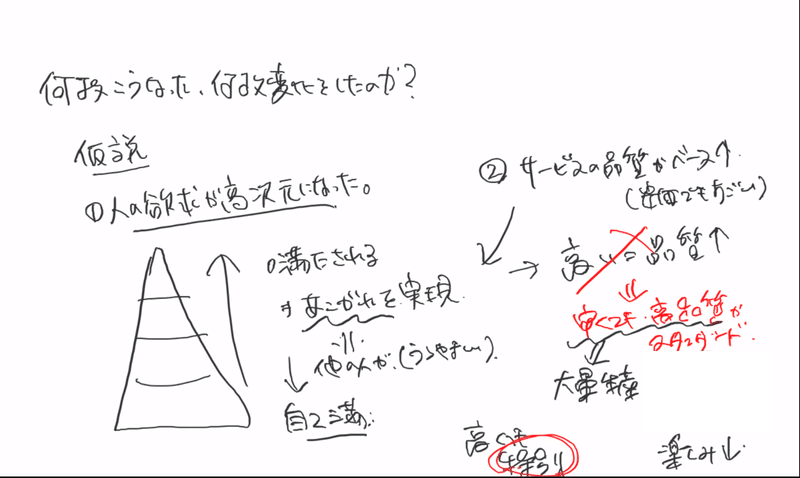 何故こうなった、何故変化をしたのか?
仮説
①人の欲求が高次元になった。
満たされる
⇒あこがれを実現
他の人が(うらやましい)
自己満
②サービスの品質がベース↑
(安価でもすごい)
→高い=品質↑
安くても高品質が
スタンダード
大量生産
高くても
楽しみ↓